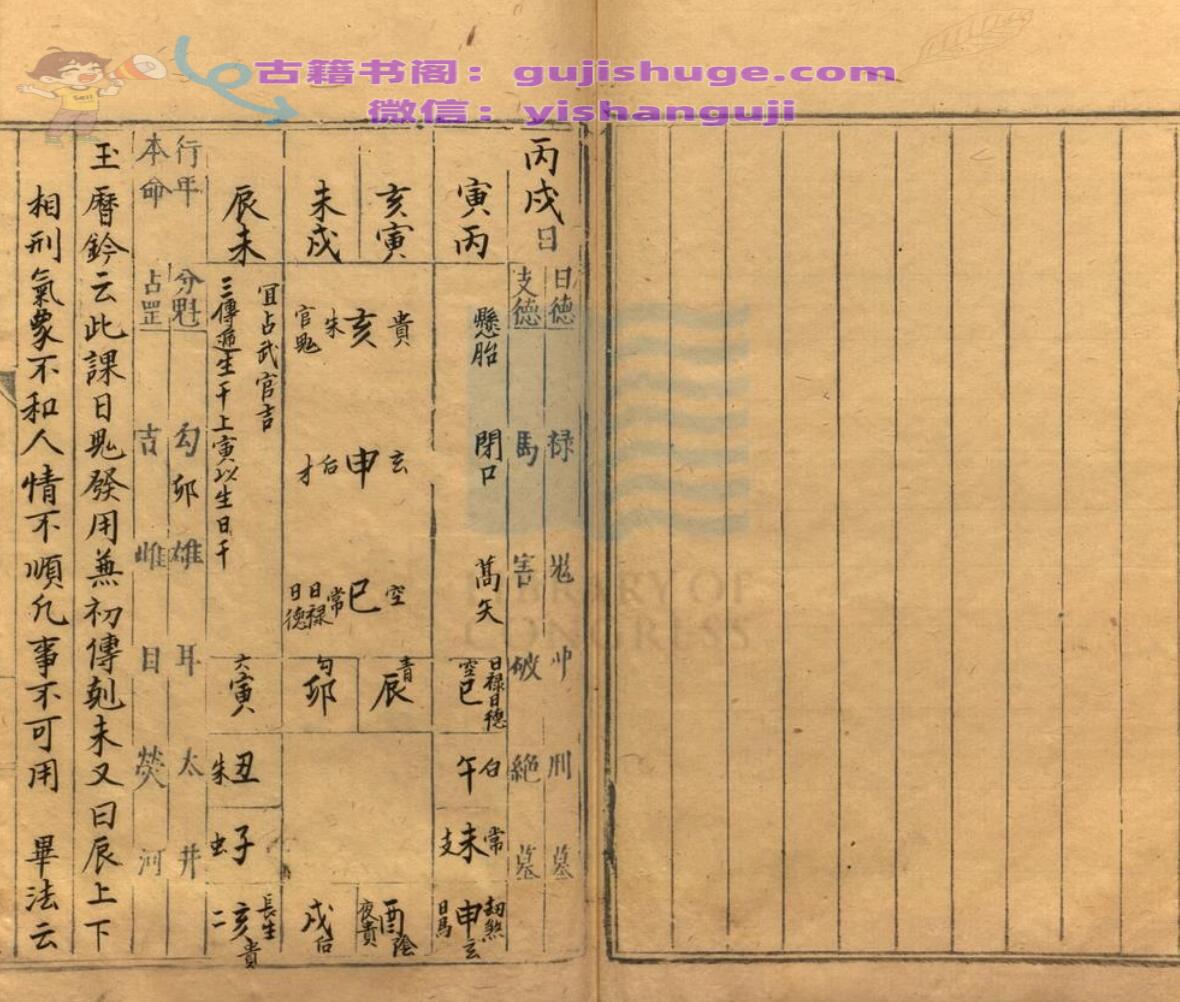 古籍书阁：gujishuge.com
微信：yishanguji
LIBRARY OF
CONGRESS
丙戌日
日德 禄 鬼 冲 刑 墓
支德 馬 害 破 絶 墓
寅丙
亥寅
未戌
辰未
懸胎 閉口 蒿矢
貴 亥 朱 官鬼
玄 申 后 才
空 巳 常 日禄 日德
宜占武官吉
三傳遞生干上寅以生日干
日禄日德 巳 空
青 辰
勾 卯
六 寅
白 午
丑 朱
常 未 支
子 虫
劫煞 申 玄 日馬
酉 陰 夜貴
戌 后
長生 亥 貴 二
行年 分魁 勾卯 雄 耳 太 井
本命 占罡 吉 雌 目 熒 河
玉曆鈐云此課日鬼發用兼初傳剋未又曰辰上下
相刑氣象不和人情不順凡事不可用 畢法云